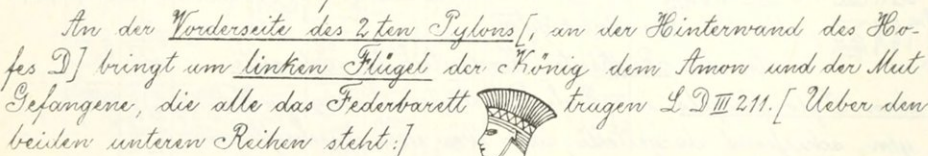 An der Vorderseite des 2 ten Pylons [, an der Hinterwand des Ho-
fes D] bringt am linken Flügel der König dem Amon und der Mut
Gefangene, die alle das Federbarett tragen L D III 211. [Ueber den
beiden unteren Reihen steht:]